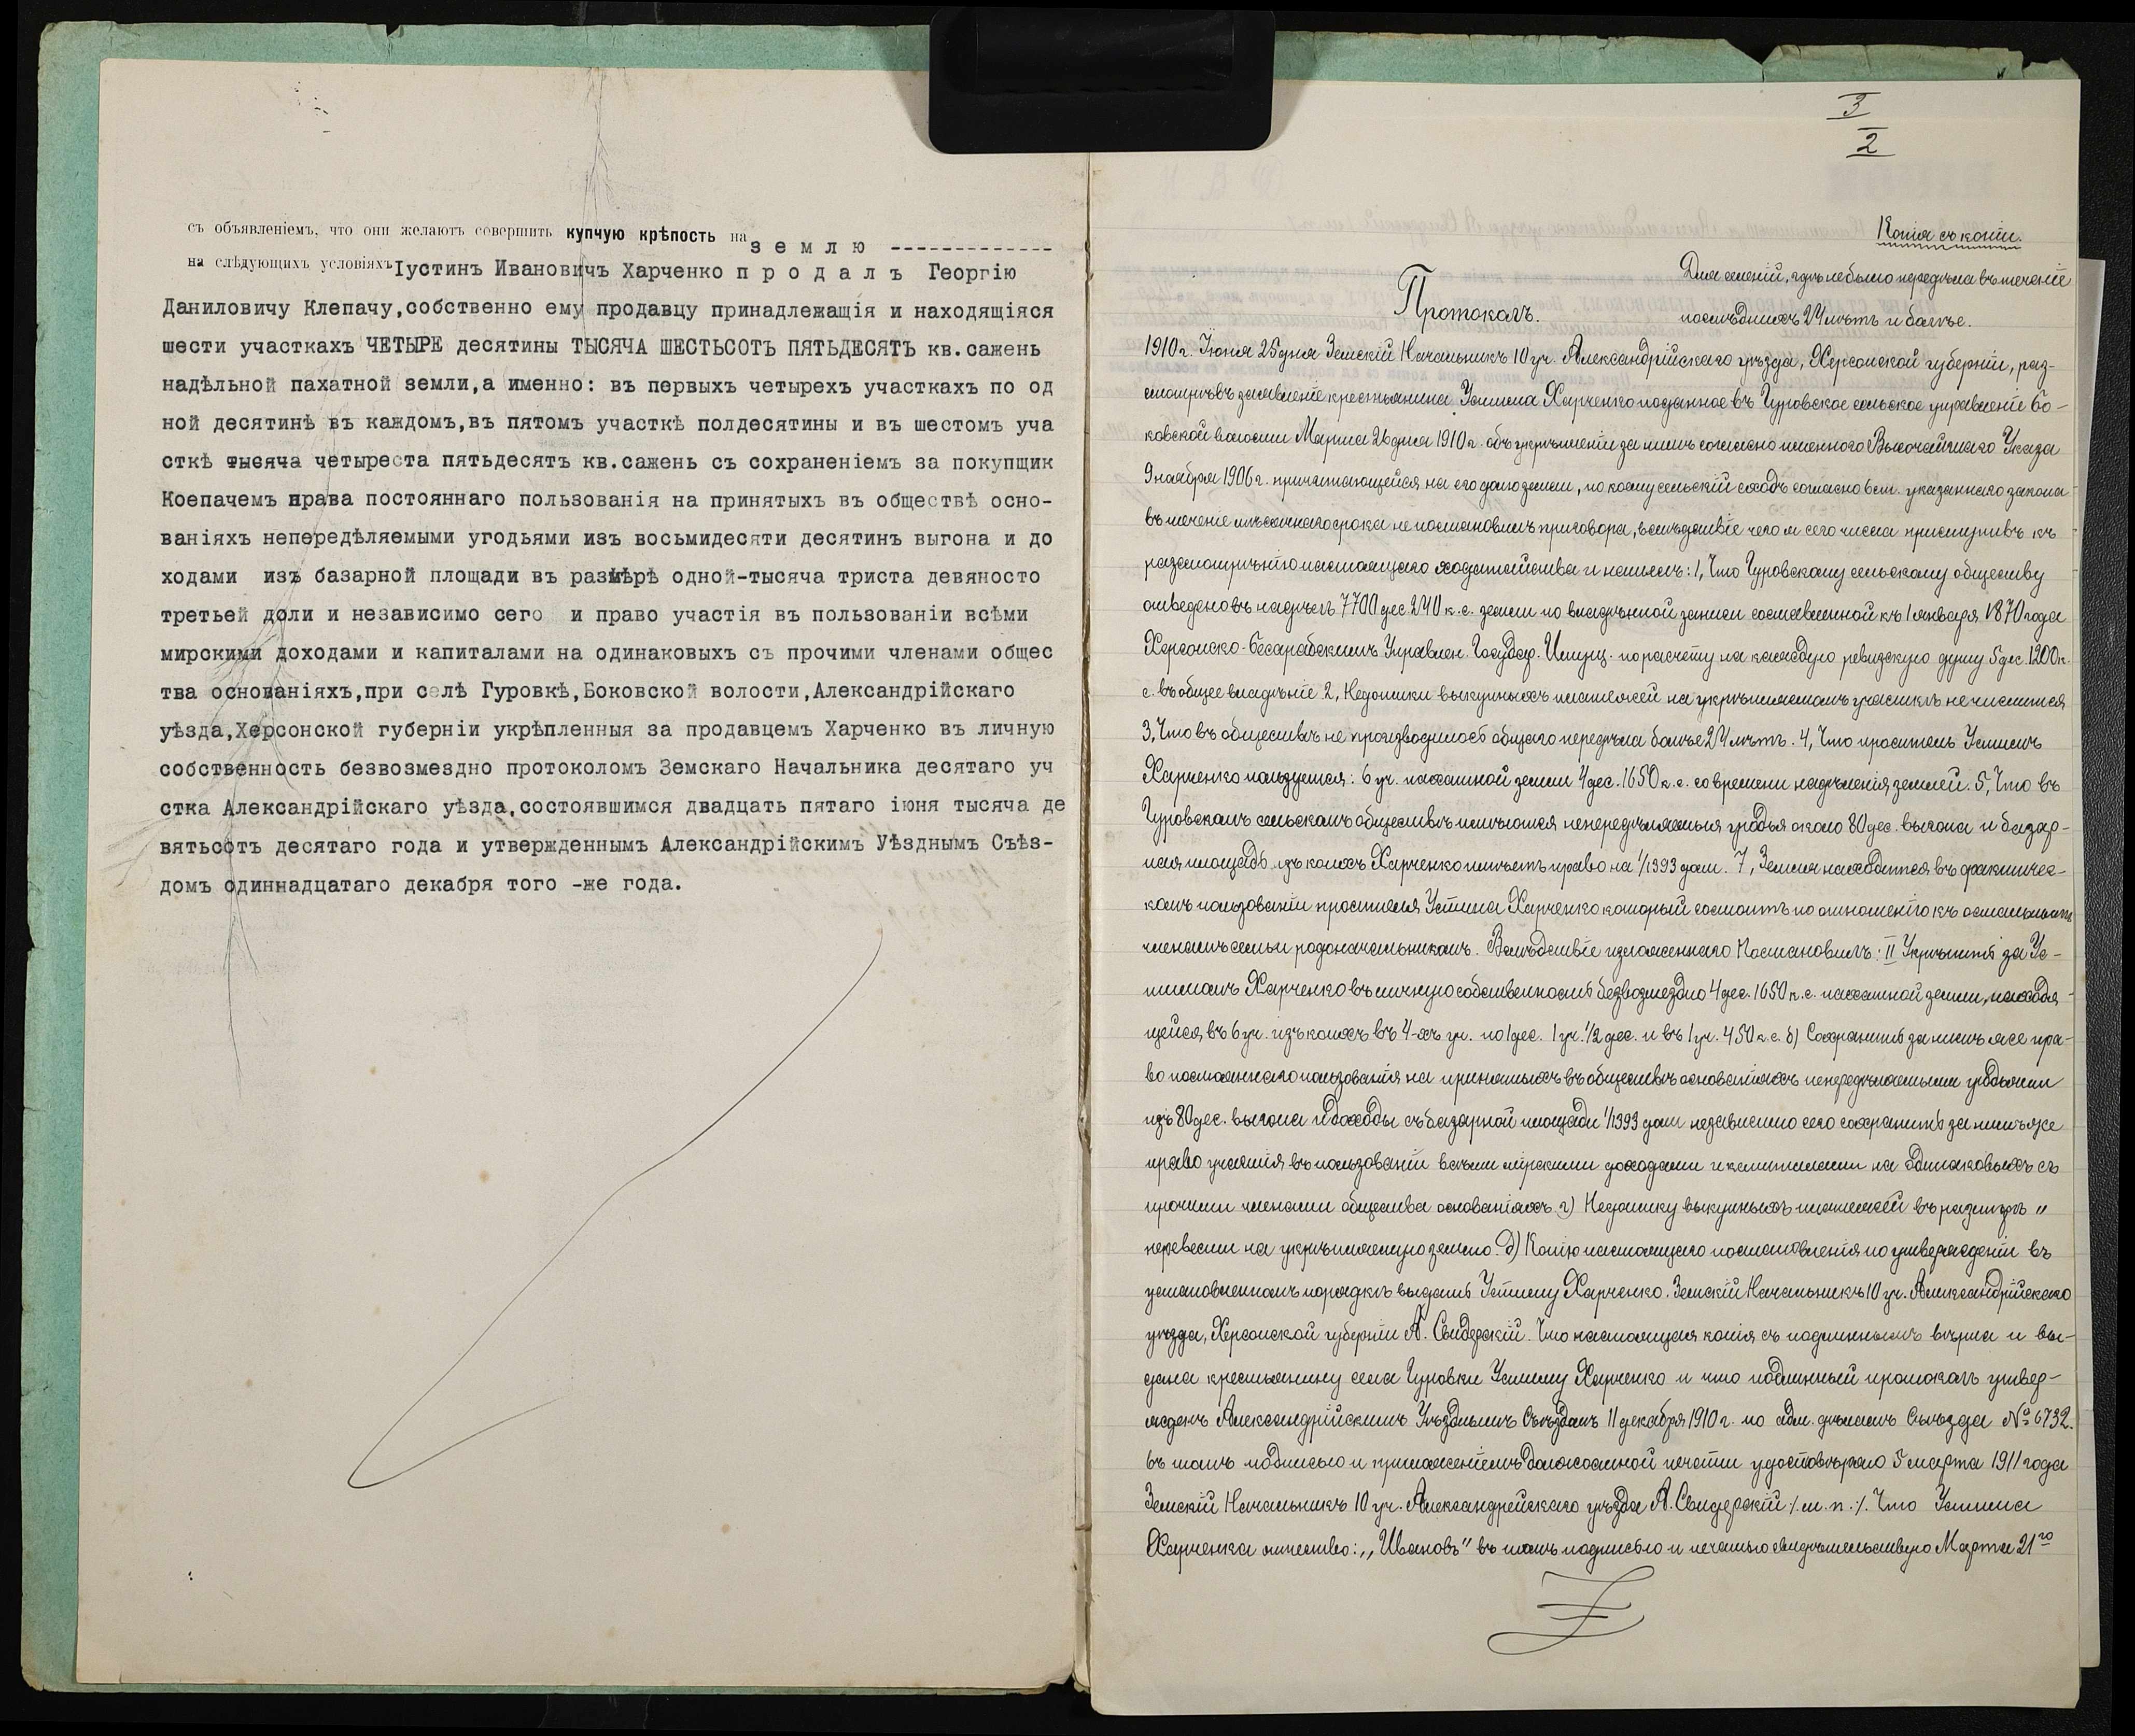 съ объявленіемъ, что они желаютъ совершить купчую крѣпость на землю -------------
на слѣдующихъ условіяхъ Іустинъ Ивановичъ Харченко продалъ Георгію
Даниловичу Клепачу,собственно ему продавцу принадлежащія и находящіяся
шести участкахъ ЧЕТЫРЕ десятины ТЫСЯЧА ШЕСТЬСОТЪ ПЯТЬДЕСЯТЪ кв.сажень
надѣльной пахатной земли,а именно: въ первыхъ четырехъ участкахъ по од
ной десятинѣ въ каждомъ,въ пятомъ участкѣ полдесятины и въ шестомъ уча
сткѣ тысяча четыреста пятьдесятъ кв.сажень съ сохраненіемъ за покупщик
Коепачемъ права постояннаго пользованія на принятыхъ въ обществѣ осно-
ваніяхъ непередѣляемыми угодьями изъ восьмидесяти десятинъ выгона и до
ходами изъ базарной площади въ размѣрѣ одной-тысяча триста девяносто
третьей доли и независимо сего и право участія въ пользованіи всѣми
мирскими доходами и капиталами на одинаковыхъ съ прочими членами общес
тва основаніяхъ,при селѣ Гуровкѣ,Боковской волости,Александрійскаго
уѣзда,Херсонской губерніи укрѣпленныя за продавцемъ Харченко въ личную
собственность безвозмездно протоколомъ Земскаго Начальника десятаго уч
стка Александрійскаго уѣзда,состоявшимся двадцать пятаго іюня тысяча де
вятьсотъ десятаго года и утвержденнымъ Александрійскимъ Уѣзднымъ Съѣз-
домъ одиннадцатаго декабря того -же года.
3
2
Копія съ копіи.
Для селеній, гдѣ не было передѣла въ теченіе
послѣднихъ 24 лѣтъ и болѣе.
Протоколъ.
1910 г. Іюня 25 дня Земскій Начальникъ 10 уч. Александрійскаго уѣзда, Херсонской губерніи, раз-
смотрѣвъ заявленіе крестьянина Устина Харченко поданное въ Гуровское сельское управленіе Бо-
ковской волости Марта 26 дня 1910 г. объ укрѣпленіи за нимъ согласно именного Высочайшаго Указа
9 ноября 1906 г. причитающейся на его долю земли, по коему сельскій сходъ согласно 6 ст. указаннаго закона
въ теченіе мѣсячнаго срока не постановилъ приговора, вслѣдствіе чего я сего числа приступивъ къ
разсмотрѣнію настоящаго ходатайства и нашелъ: 1, Что Гуровскому сельскому обществу
отведено въ надѣлъ 7700 дес 240 к.с. земли по владѣнной записи составленной къ 1 января 1870 года
Херсонско-Бесарабскимъ Управлен. Государ. Имущ. по расчету на каждую ревизскую душу 5 дес. 1200 к.
с. въ общее владѣніе 2, Недоимки выкупныхъ платежей на укрѣпляемомъ участкѣ не числится
3, Что въ обществѣ не производилось общаго передѣла болѣе 24 лѣтъ. 4, Что проситель Устинъ
Харченко пользуется: 6 уч. пахатной земли 4 дес. 1650 к.с. со времени надѣленія землей. 5, Что въ
Гуровскомъ сельскомъ обществѣ имѣются непередѣляемыя угодья около 80 дес. выгона и базар-
ная площадь изъ коихъ Харченко имѣетъ право на 1/1393 доли. 7, Земля находится въ фактичес-
комъ пользованіи просителя Устина Харченко который состоитъ по отношенію къ остальнымъ
членамъ семьи родоначальникомъ. Вслѣдствіе изложеннаго Постановилъ: II Укрѣпить за Ус-
тиномъ Харченко въ личную собственность безвозмездно 4 дес. 1650 к.с. пахатной земли, находя-
щейся въ 6 уч. изъ коихъ въ 4-хъ уч. по 1 дес. 1 уч. 1/2 дес. и въ 1 уч. 450 к.с. б) Сохранить за нимъ же пра-
во постояннаго пользованія на принятыхъ въ обществѣ основаніяхъ непередѣляемыми угодьями
изъ 80 дес. выгона и доходы съ базарной площади 1/1393 доли независимо сего сохранить за нимъ же
право участія въ пользованіи всѣми мірскими доходами и капиталами на одинаковыхъ съ
прочими членами общества основаніяхъ г) Недоимку выкупныхъ платежей въ размѣрѣ "
перевести на укрѣпляемую землю. д) Копію настоящаго постановленія по утвержденіи въ
установленномъ порядкѣ выдать Устину Харченко. Земскій Начальникъ 10 уч. Александрійскаго
уѣзда, Херсонской губерніи А. Свидерскій. Что настоящая копія съ подлиннымъ вѣрна и вы-
дана крестьянину села Гуровки Устину Харченко и что подлинный протоколъ утвер-
жденъ Александрійскимъ Уѣзднымъ Съѣздомъ 11 декабря 1910 г. по адм. дѣламъ Съѣзда № 6732.
въ томъ подписью и приложеніемъ должностной печати удостовѣряю 5 марта 1911 года
Земскій Начальникъ 10 уч. Александрейскаго уѣзда А. Свидерскій /.м.п./. Что Устина
Харченка отчество: „Ивановъ" въ томъ подписью и печатью свидѣтельствую Марта 21го